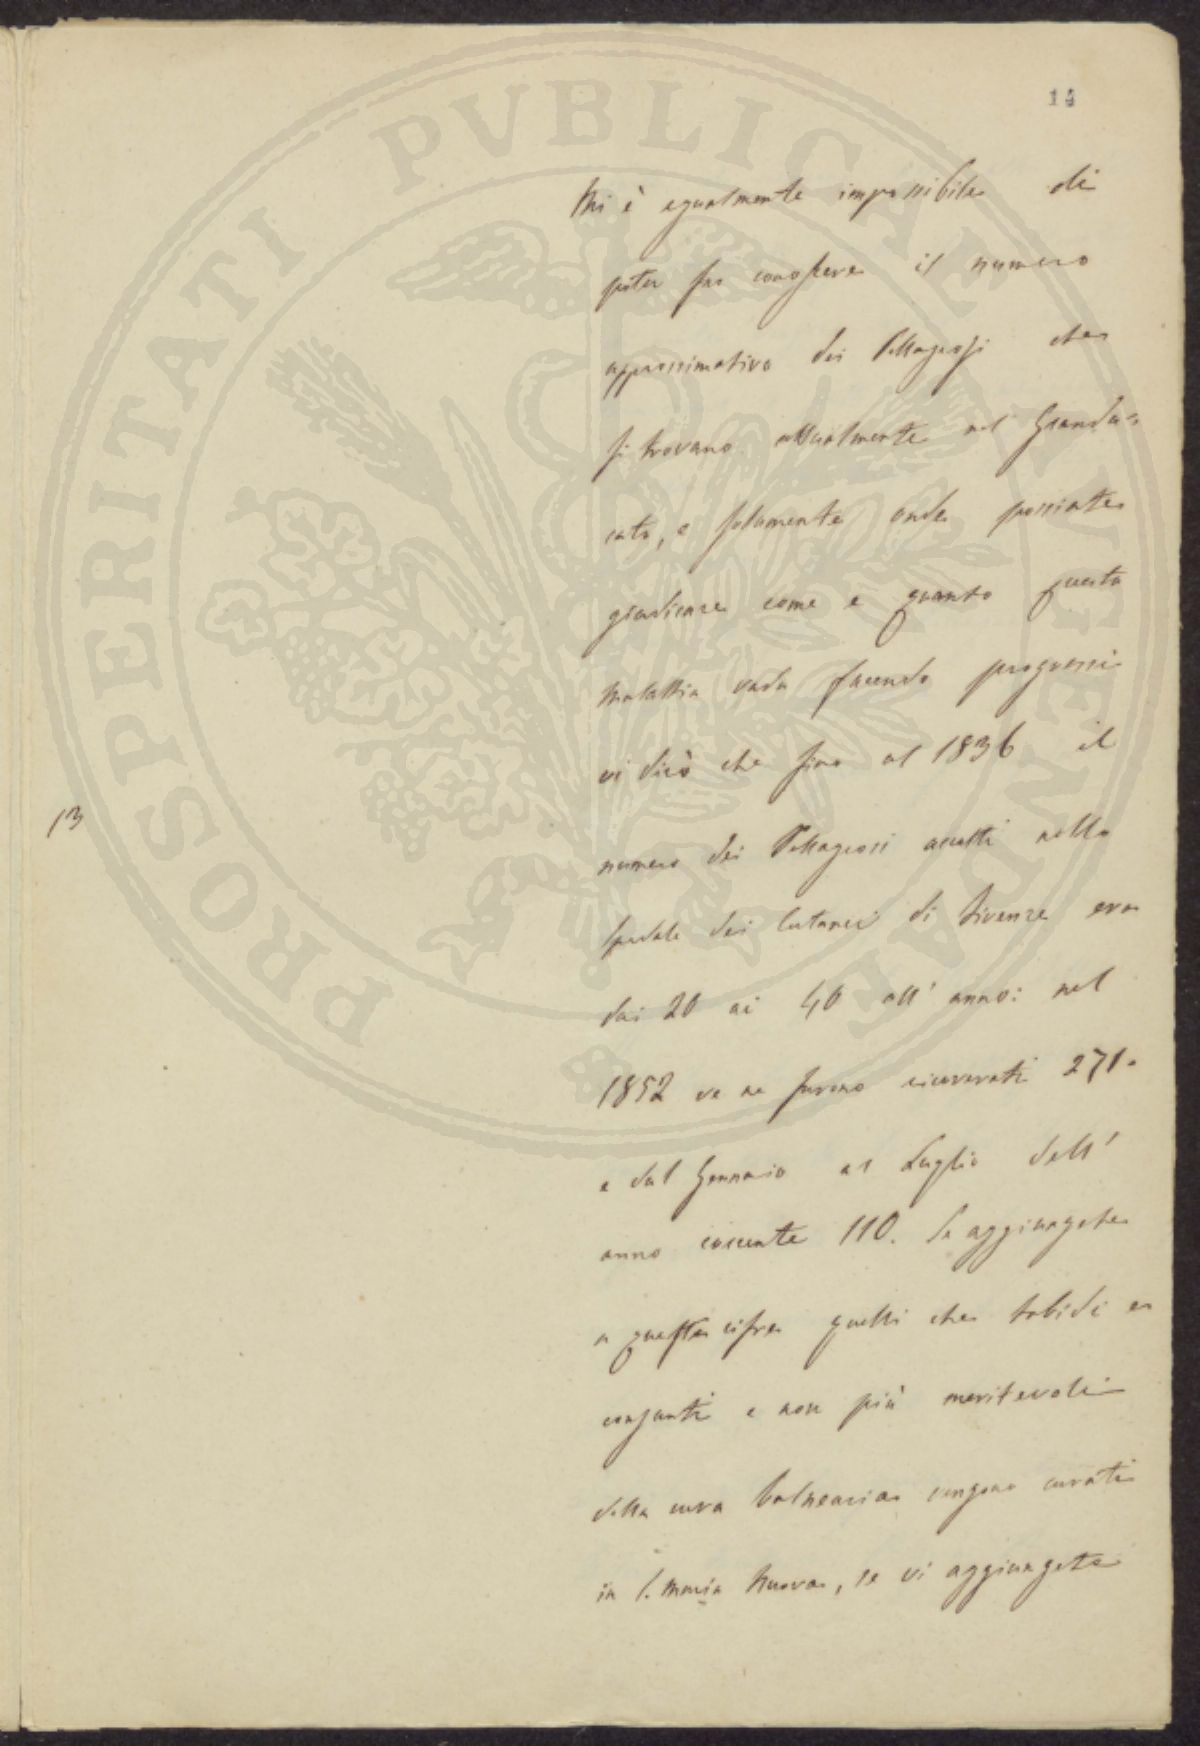 14
Mi è egualmente impossibile di
poter far conoscere il numero
approssimativo dei Pellagrosi che
si trovano attualmente nel Grandu=
cato, e solamente onde possiate
giudicare come e quanto questa
malattia vada facendo progressi
vi dirò che fino al 1836 il
13
numero dei Pellagrosi accolti nello
spedale dei Cutanei di Firenze era
dai 20 ai 40 all' anno: nel
1852 ve ne furono ricoverati 271.
e dal Gennaio al Luglio dell'
anno corrente 110. Se aggiungete
a questa cifra quelli che tabidi e
consunti e non più meritevoli
della cura balnearia vengono curati
in S. Maria Nuova, se vi aggiungete
PROSPERITATI PVBLICAE AVGENDAE